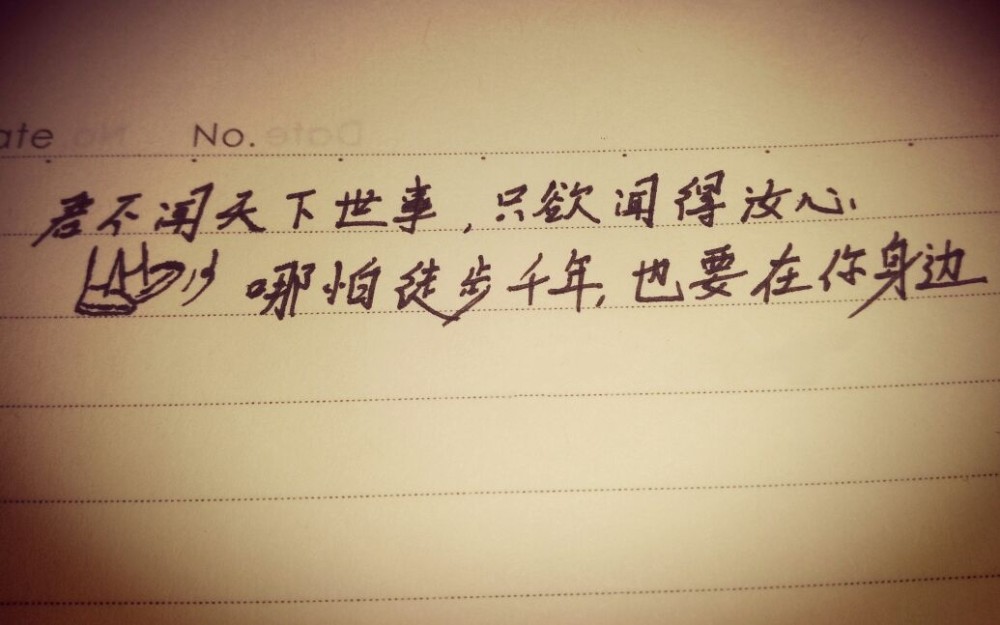 ate No.
君不闻天下世事,只欲闻得汝心.
哪怕徒步千年,也要在你身边